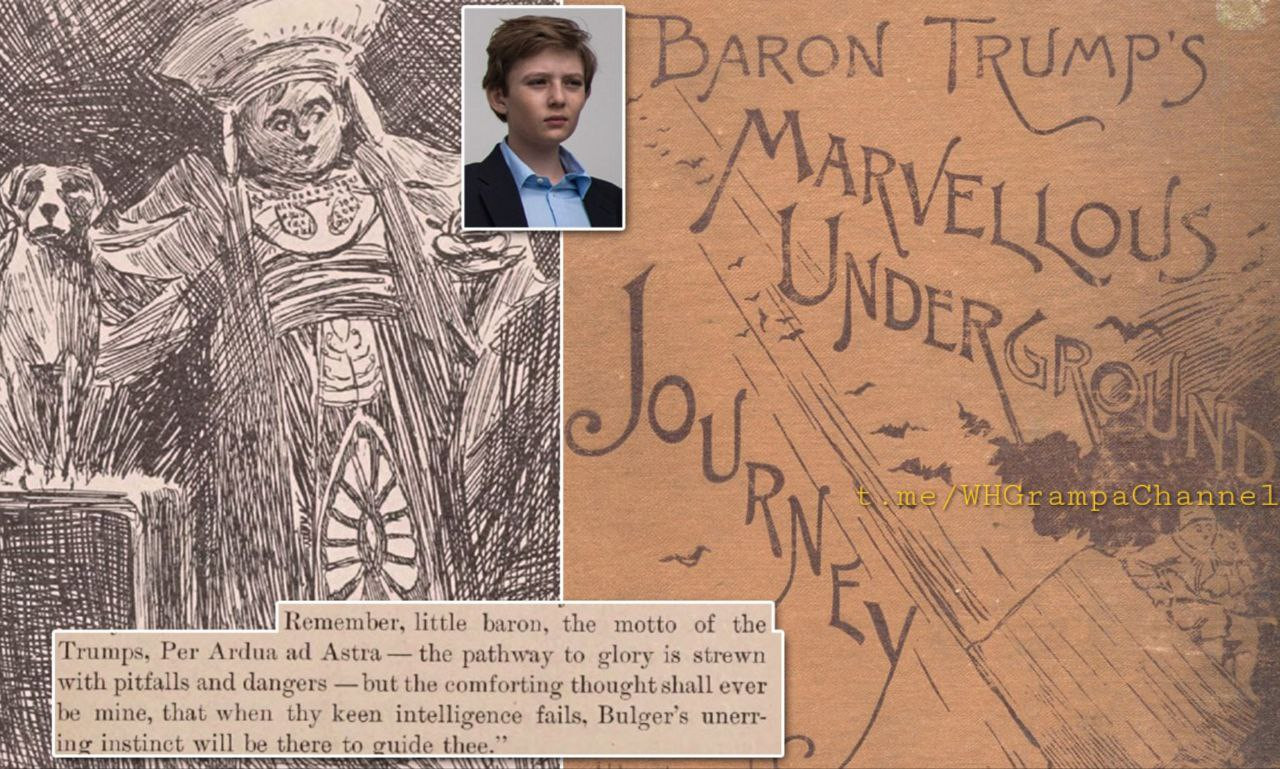 BARON TRUMP'S
MARVELLOUS
UNDERGROUND
JOURNEY
t.me/WHGrampaChannel
Remember, little baron, the motto of the
Trumps, Per Ardua ad Astra — the pathway to glory is strewn
with pitfalls and dangers — but the comforting thought shall ever
be mine, that when thy keen intelligence fails, Bulger's unerr-
ing instinct will be there to guide thee."